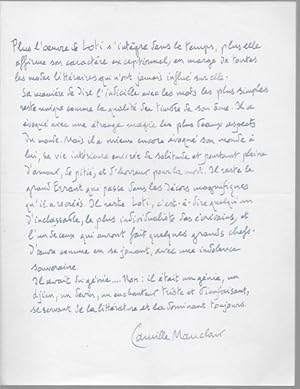 Plus l'œuvre de Loti s'intègre dans le temps, plus elle
affirme son caractère exceptionnel, en marge de toutes
les modes littéraires qui n'ont jamais influé sur elle.
Sa manière de dire l'indicible avec les mots les plus simples
reste unique comme la qualité du timbre de son âme. Il a
évoqué avec une étrange magie les plus beaux aspects
du monde. Mais il a mieux encore évoqué son monde à
lui, sa vie intérieure murée de solitude et pourtant pleine
d'amour, de pitié, et d'horreur pour la mort. Il reste le
grand Errant qui passe dans les décors magnifiques
qu'il a créés. Il reste Loti, c'est-à-dire quelqu'un
d'inclassable, le plus individualiste des écrivains, et
l'un de ceux qui auront fait quelques grands chefs-
d'œuvre comme en se jouant, avec une indolence
souveraine.
Il avait du génie.... Non : il était un génie, un
djinn, un devin, un enchanteur triste et
se servant de la littérature et la dominant toujours.
Camille Mauclair